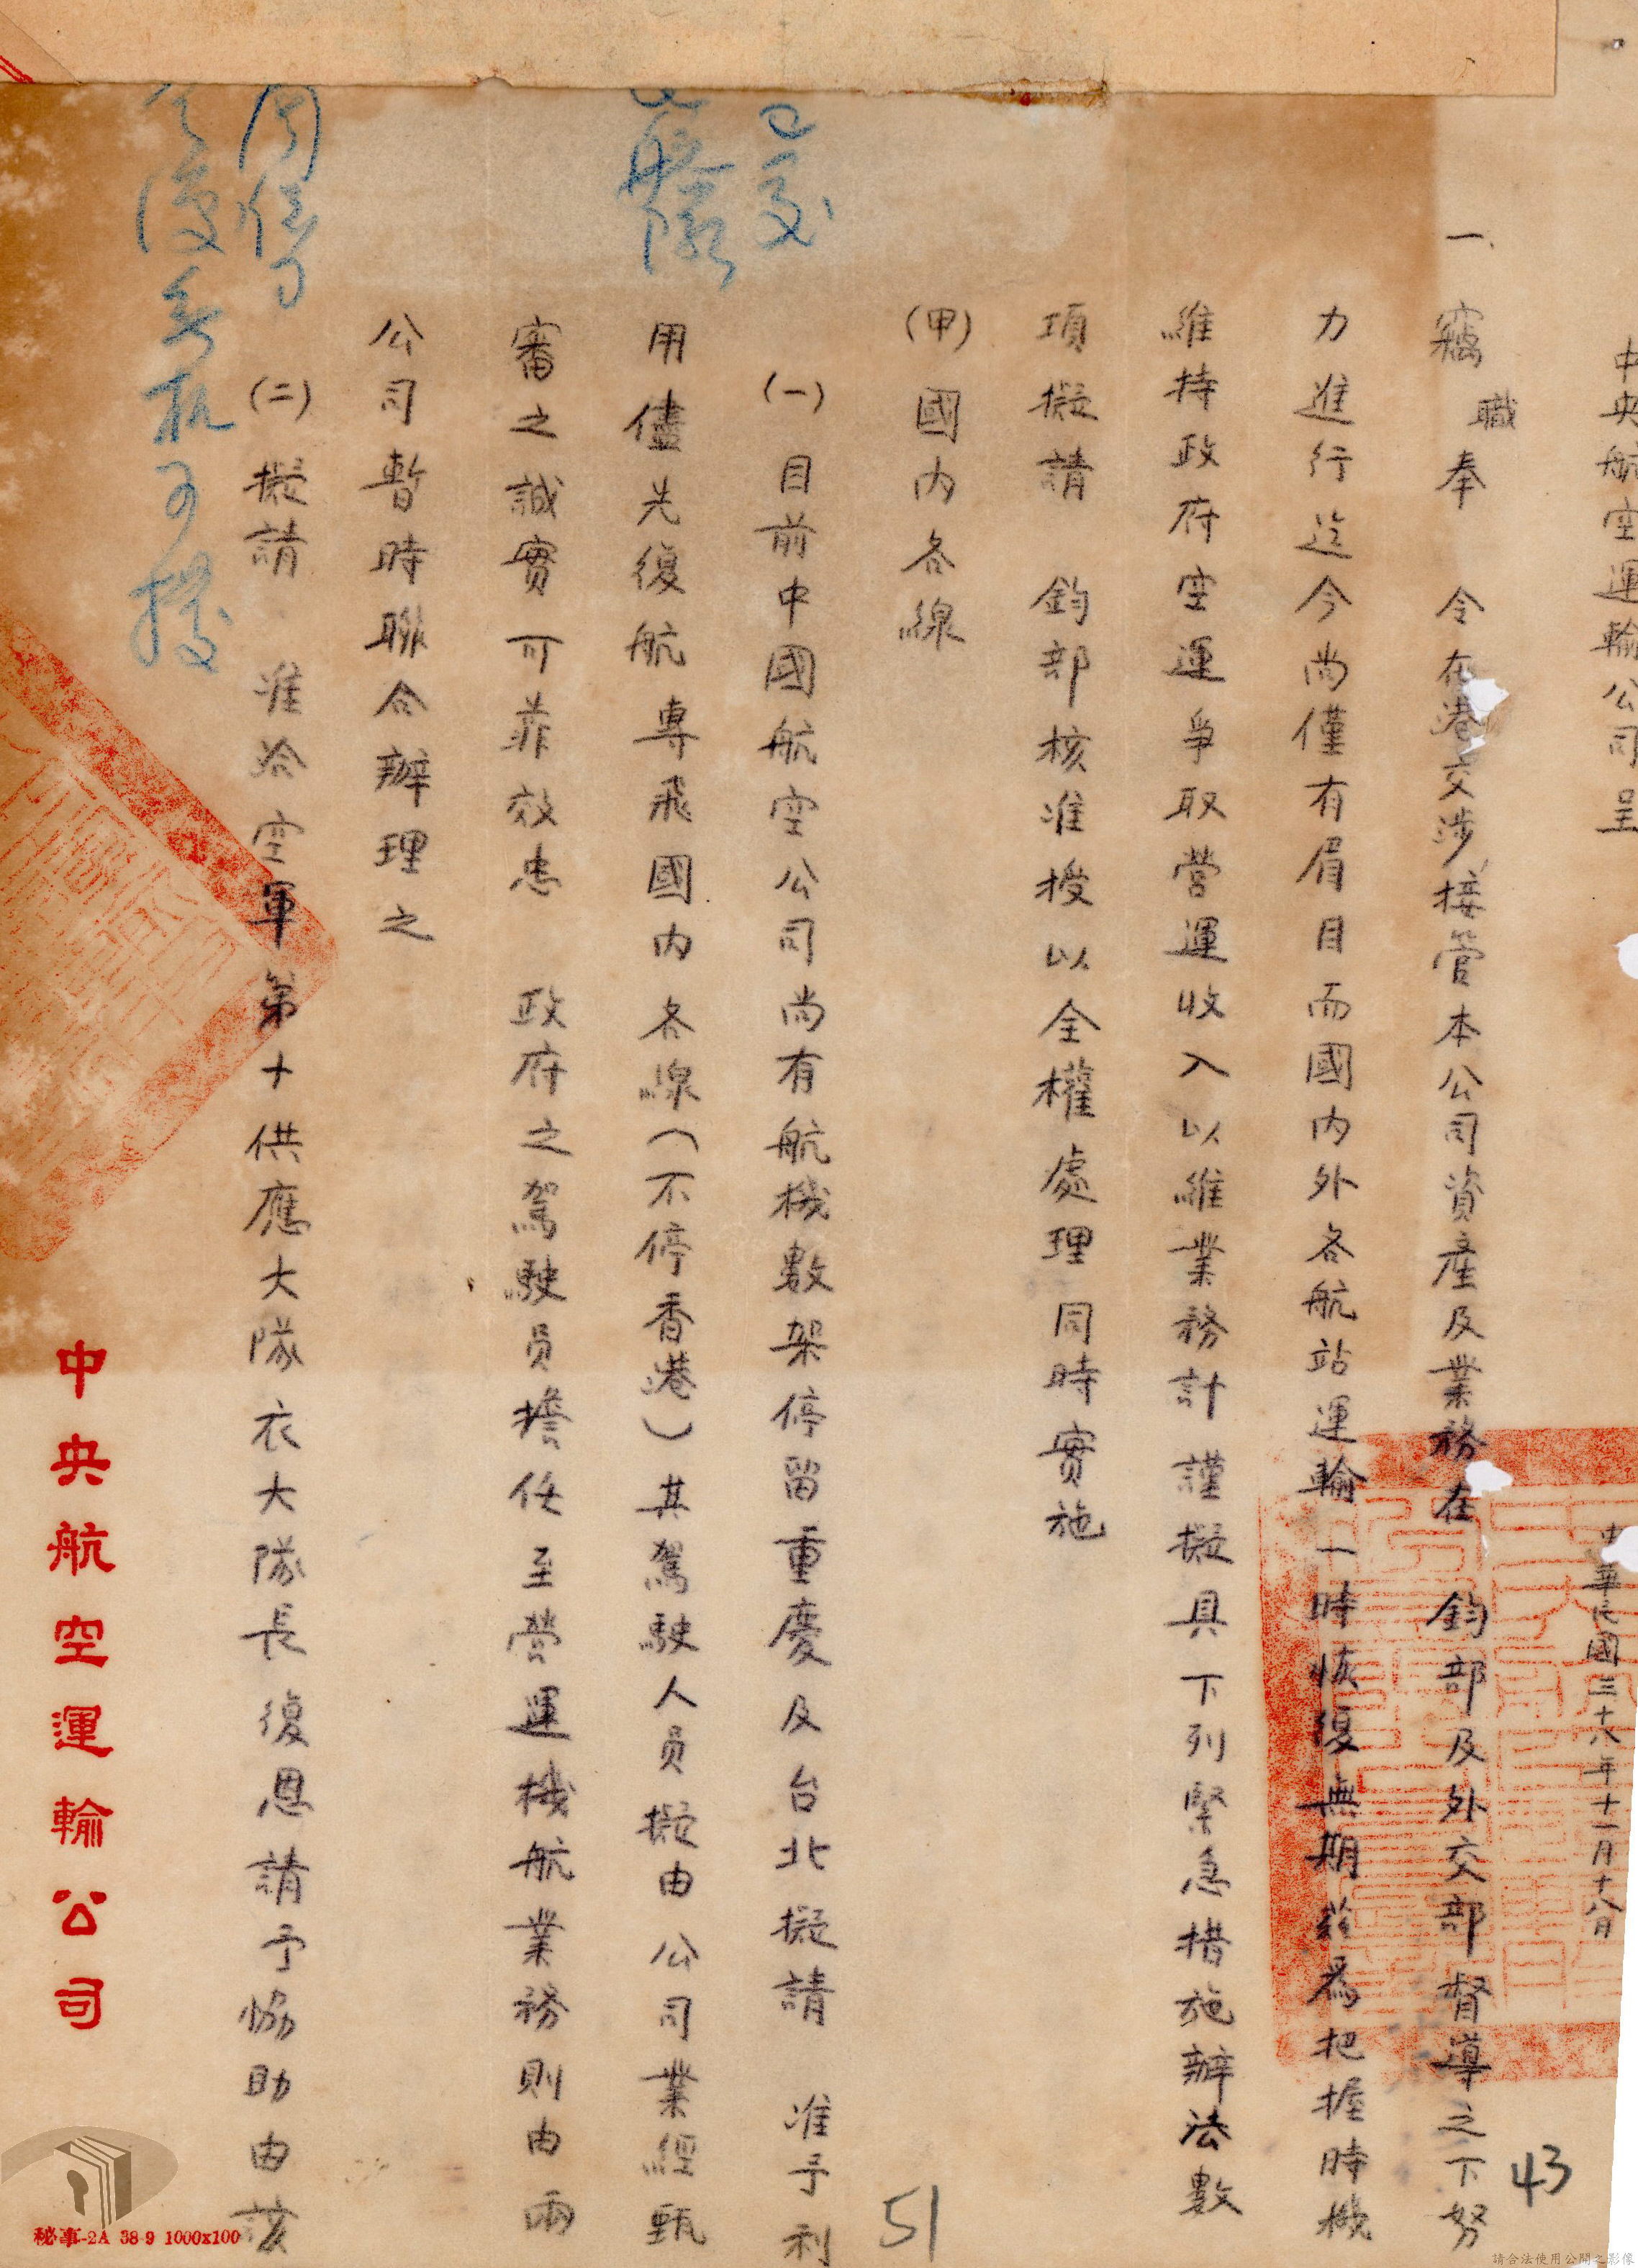 中央航空運輸公司呈
中華民國三十八年十一月十八日
一、竊職奉 令在港交涉接管本公司資產及業務在 鈞部及外交部督導之下努
力進行迄今尚僅有眉目而國內外各航站運輸一時恢復無期茲為把握時機
維持政府空運爭取營運收入以維業務計謹擬具下列緊急措施辦法數
項擬請 鈞部核准授以全權處理同時實施
(甲)國內各線
(一)目前中國航空公司尚有航機數架停留重慶及台北擬請 准予利
用儘先復航專飛國內各線(不停香港)其駕駛人員擬由公司業經甄
審之誠實可靠效忠 政府之駕駛員擔任至營運機航業務則由兩
公司暫時聯合辦理之
(二)擬請 准洽空軍第十供應大隊衣大隊長復恩請予協助由該
中央航空運輸公司
秘事-2A 38-9 1000x100
43
51
請合法使用公開之影像